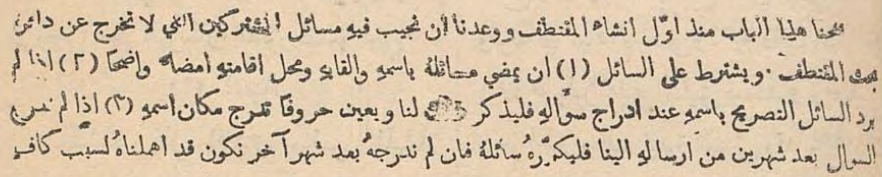 فتحنا هذا الباب منذ اوّل انشاء المقتطف ووعدنا ان نجيب فيهِ مسائل المشتركين التي لا تخرج عن دائرة
بحث المقتطف ٠ ويشترط على السائل (١) ان يمضي مسائلهُ باسمهِ والقابهِ ومحل اقامتهِ امضاءً واضحًا (٢) اذا لم
يرد السائل التصريح باسمهِ عند ادراج سوّالهِ فليذكر ذلك لنا ويعين حروفًا تدرج مكان اسمهِ (٣) اذا لم ندرج
السوال بعد شهرين من ارسالهِ الينا فليكرّرهُ سائلهُ فان لم ندرجهُ بعد شهر آخر نكون قد اهملناهُ لسبب كافٍ